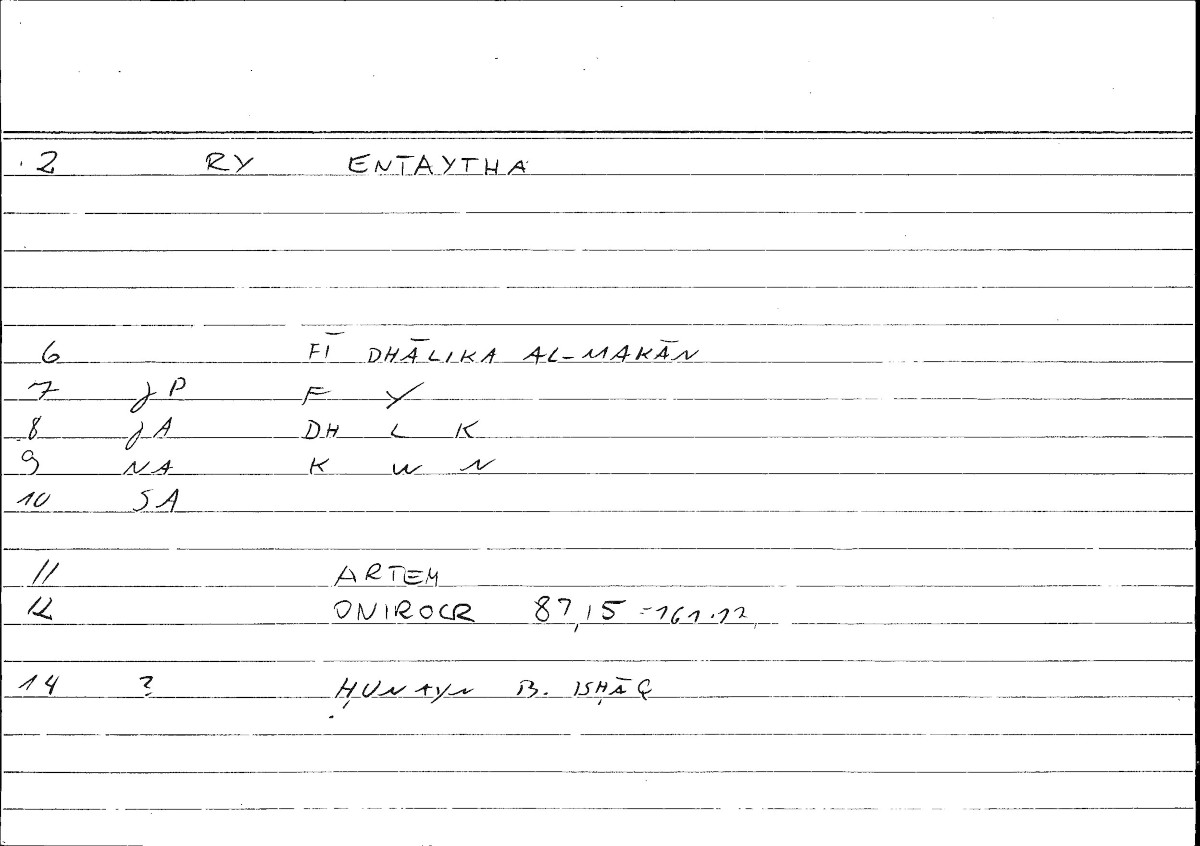 2 RY ENTAYTHA
6 FĪ DHĀLIKA AL-MAKĀN
7 JP F Y
8 JA DH L K
9 NA K W N
10 SA
11 ARTEM
12 ONIROCR 87,15 = 161.12
14 ? ḤUNAYN B. ISḤĀQ